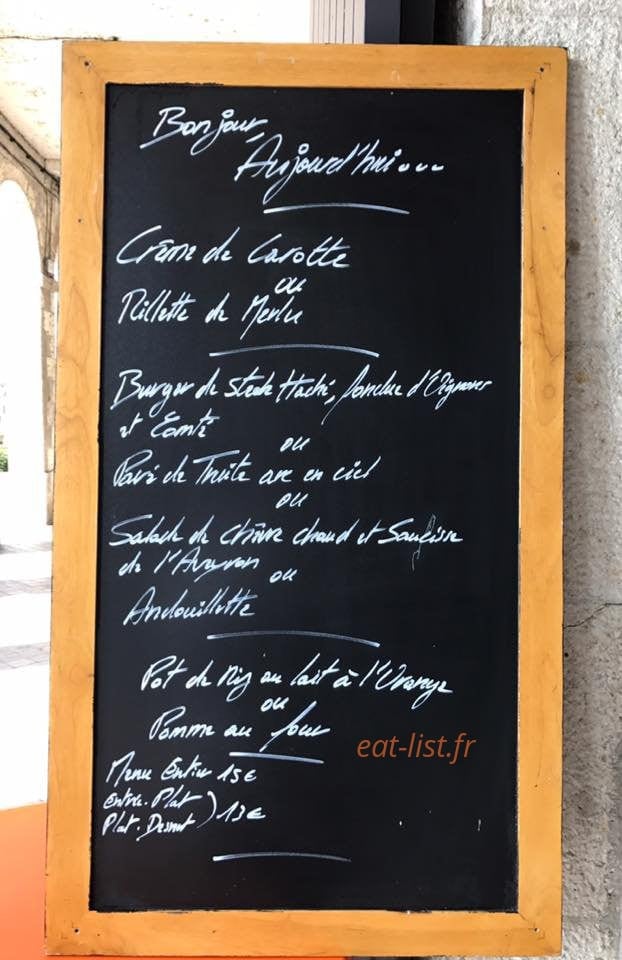 Bonjour,
Aujourd'hui...
Crème de Carotte
ou
Rillette de Merlu
Burger de Steak Haché, fondue d'Oignons
et Comté
ou
Pavé de Truite arc en ciel
ou
Salade de Chèvre chaud et Saucisse
de l'Aveyron
ou
Andouillette
Pot de Riz au lait à l'Orange
ou
Pomme au four
eat-list.fr
Menu Entier 15€
Entrée. Plat
Plat. Dessert ) 13€